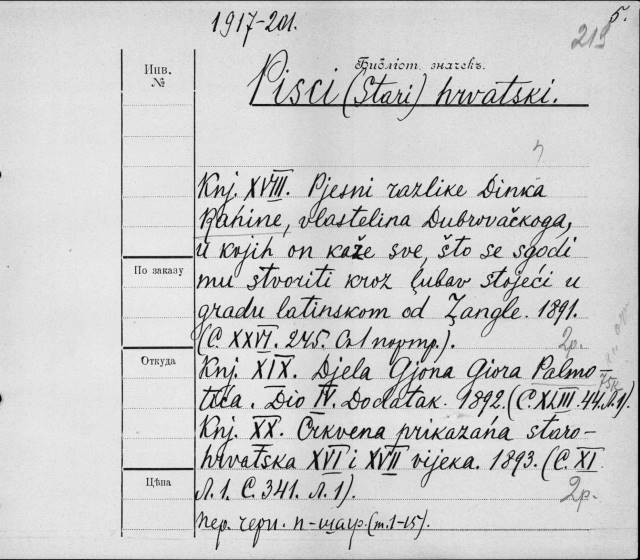 1917-201.
5.
219
Библіот. значекъ.
Инв. №
Pisci (Stari) hrvatski.
Knj. XVIII. Pjesni razlike Dinka
Rańine, vlastelina Dubrovačkoga,
u kojih on kaže sve, što se sgodi
По заказу
mu stvoriti kroz ļubav stojeći u
gradu latinskom od Zangle. 1891.
(С. XXVI. 245. Сл 1 портр.).
2р.
Откуда
Knj. XIX. Djela Gjona Gjora Palmo
tića. Dio IV. Dodatak. 1892. (С. XLIII. 44. Л. 1).
Knj. XX. Crkvena prikazańa staro-
hrvatska XVI i XVII vijeka. 1893. (С. XI
Цѣна
Л. 1. С. 341. Л. 1).
2р.
Пер. черн. п-шагр. (т. 1-15).